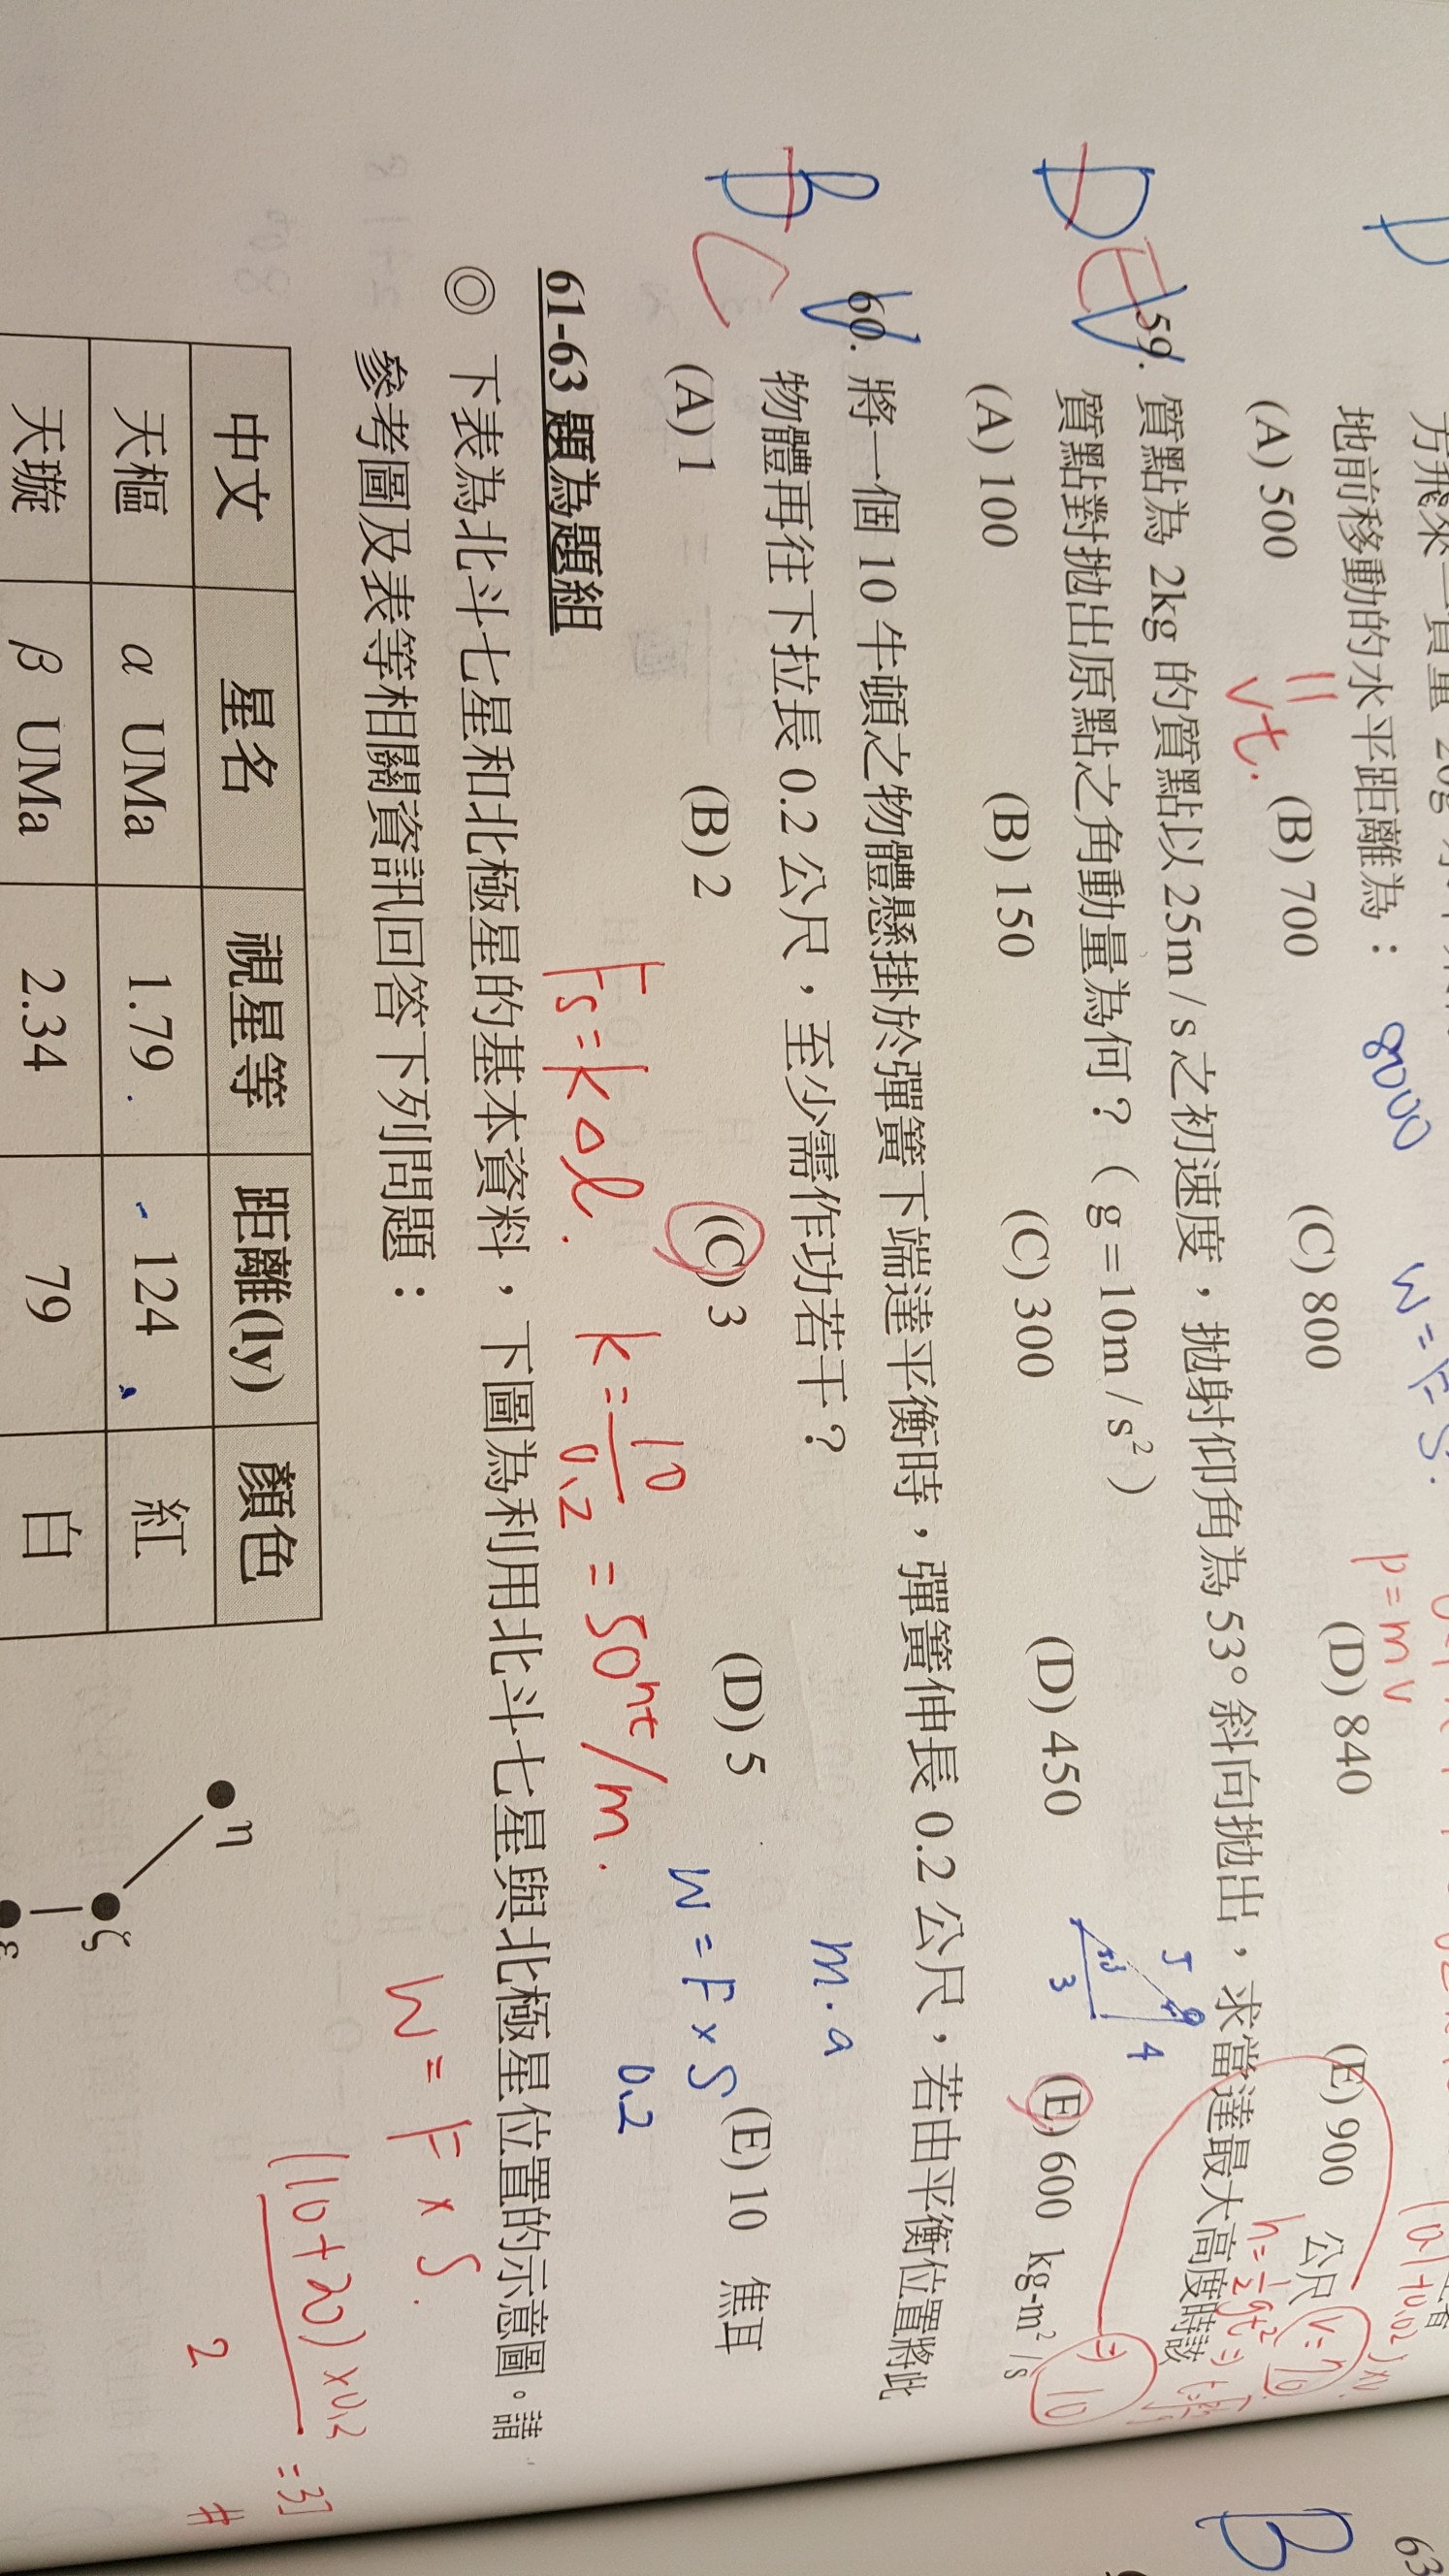 地前移動的水平距離為：
8000
W = F · S.
p = m v
(A) 500 (B) 700 (C) 800 (D) 840 (E) 900 公尺
vt.
D E
59. 質點為 2kg 的質點以 25m / s 之初速度，拋射仰角為 53° 斜向拋出，求當達最大高度時該
質點對拋出原點之角動量為何？（ g = 10m / s² ）
5
3
4
(A) 100 (B) 150 (C) 300 (D) 450 (E) 600 kg-m² / s
10
B C
60. 將一個 10 牛頓之物體懸掛於彈簧下端達平衡時，彈簧伸長 0.2 公尺，若由平衡位置將此
物體再往下拉長 0.2 公尺，至少需作功若干？
m · a
(A) 1 (B) 2 (C) 3 (D) 5 (E) 10 焦耳
W = F × S
0.2
Fs = k Δl. k = 10 / 0.2 = 50 nt/m.
61-63 題為題組
◎ 下表為北斗七星和北極星的基本資料，下圖為利用北斗七星與北極星位置的示意圖。請
參考圖及表等相關資訊回答下列問題：
W = F × S.
(10+20) × 0.2 / 2 = 3J #
中文 星名 視星等 距離(ly) 顏色
天樞 α UMa 1.79 124 紅
天璇 β UMa 2.34 79 白
η
ζ
ε
B
63